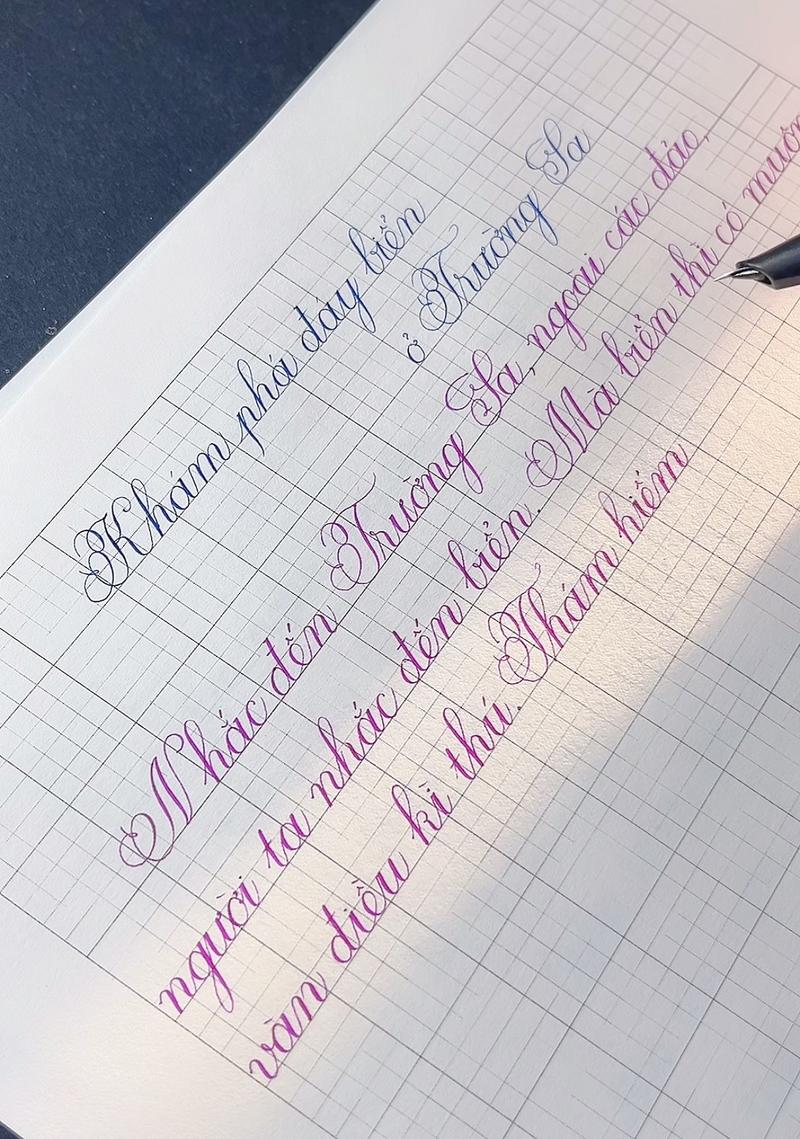 Khám phá đáy biển
ở Trường Sa
Nhắc đến Trường Sa, ngoài các đảo,
người ta nhắc đến biển. Mà biển thì có muôn
vàn điều kì thú. Thám hiểm